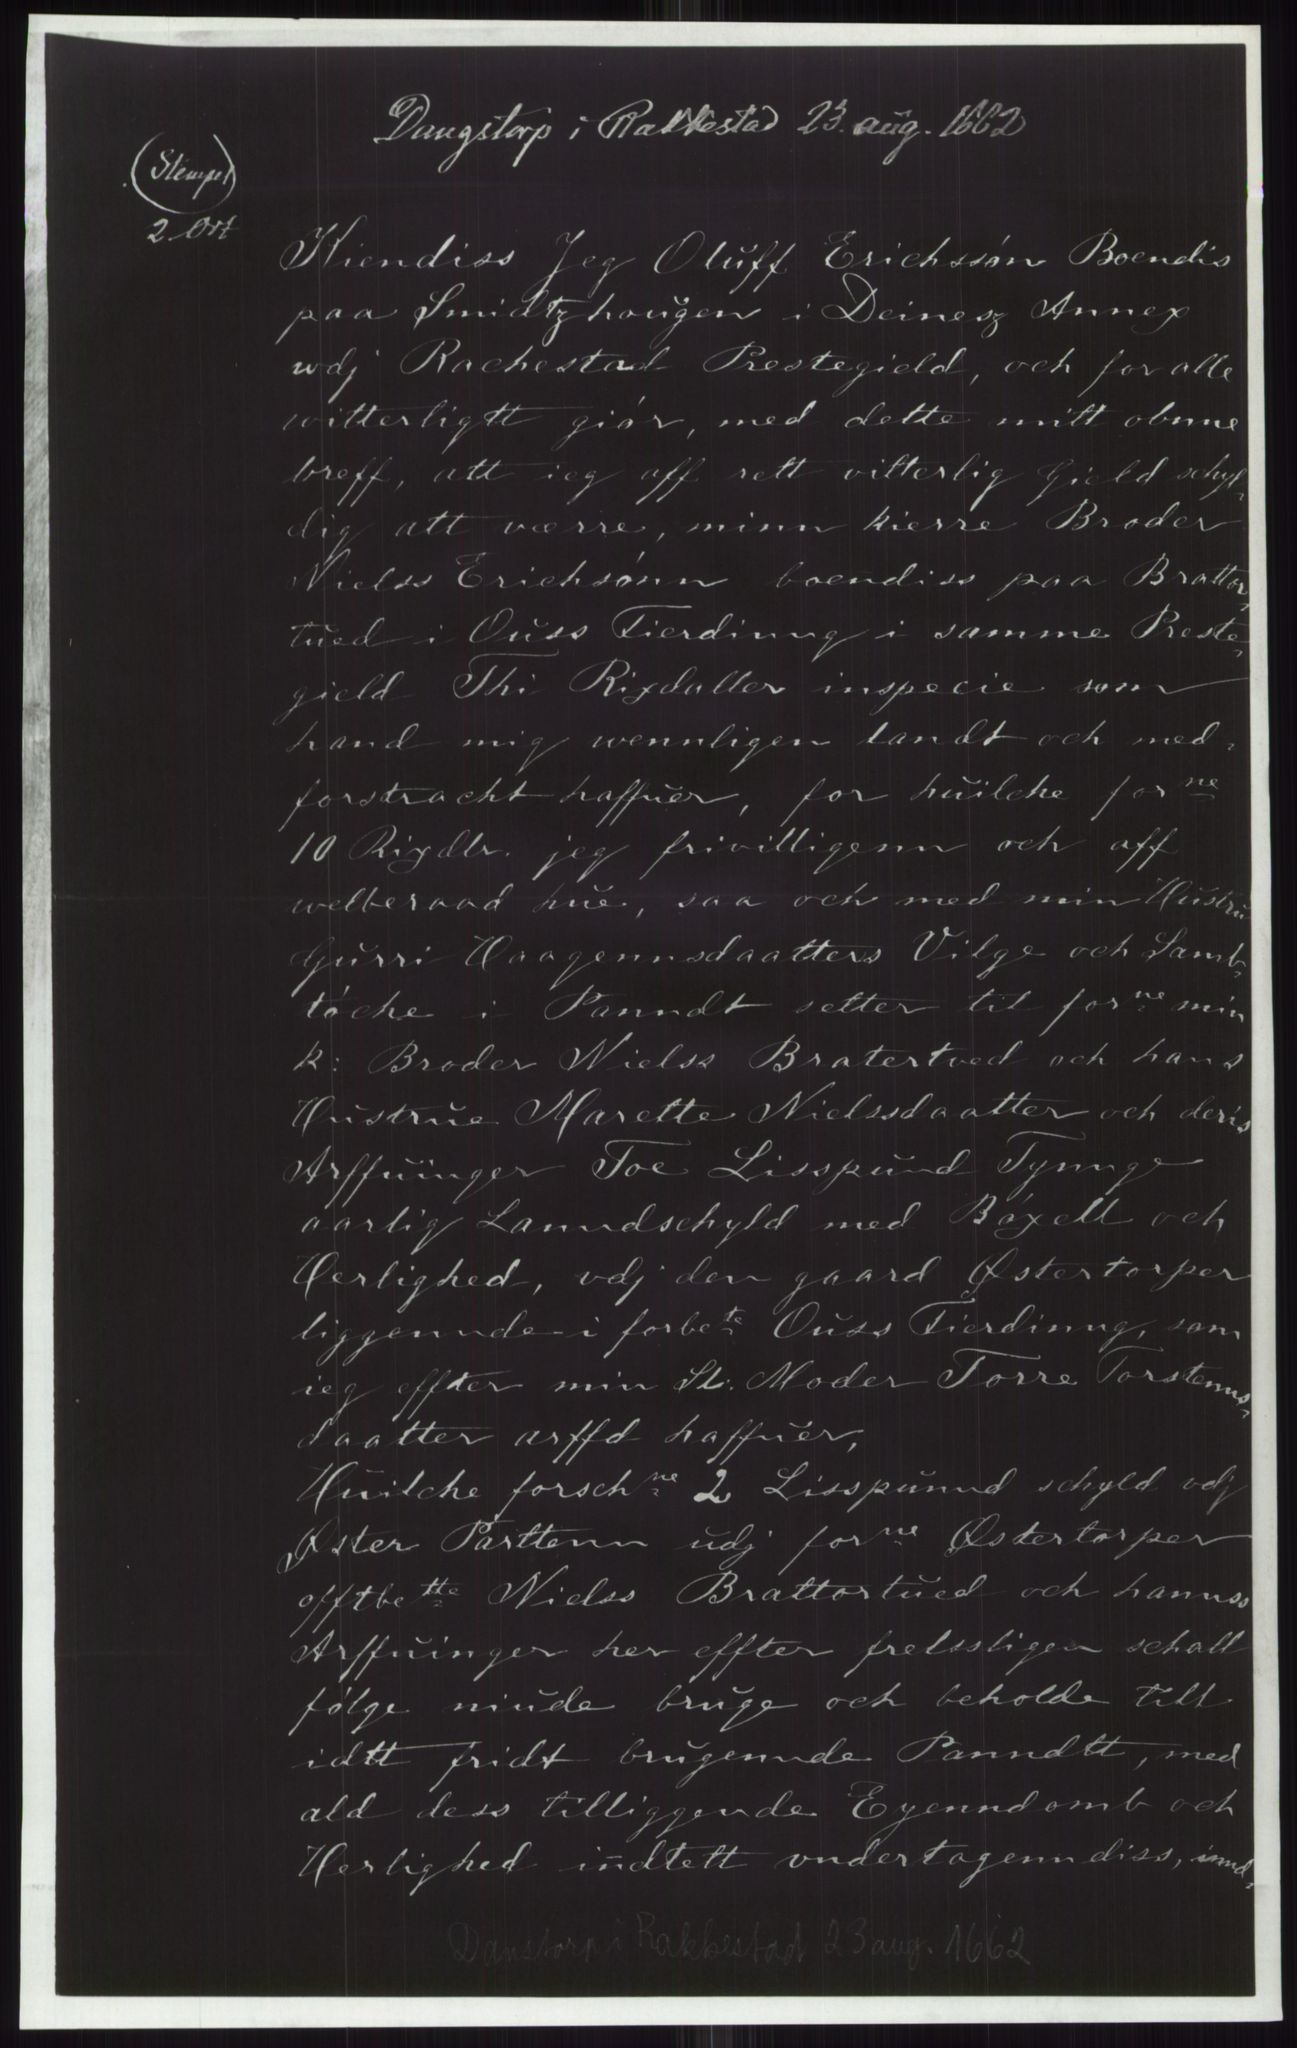 Dangstorp i Rakkestad 23. aug. 1662
(Stempel)
2. Ort
Kiendiss Jeg Oluff Erichssøn Boendis
paa Smidtzhougen i Deinesz Annex
wdj Rachestad Prestegield, och for alle
witterligtt giør, med dette mitt obnne
breff, att ieg aff rett vitterlig Gield schyl-
dig att værre, minn kierre Broder
Nielss Erichsønn boendiss paa Brattor-
tued i Ouss Fierdinng i samme Preste-
gield Thi Rixdaller inspecie som
hand mig wennligen landt och med-
forstracht haffuer, for huilche forne
10 Rixdlr. jeg frivilligenn och aff
welberaad hue, saa och med min Hustru
Gurri Haagennsdaatters Vilge och Samb-
tøche i Panndt setter til forne min
k: Broder Nielss Bratertved och hans
Hustrue Marette Nielssdaatter och deris
Arffuinger Toe Lisspund Tynnge
aarlig Lanndschyld med Bøxell och
Herlighed, vdj den gaard Østertorper
liggennde i forbete Ouss Fierdinng, som
ieg effter min Sl. Moder Torre Torstenns-
daatter arffd haffuer,
Huilche forschne 2 Lisspunnd schyld vdj
Øster Parttenn udj forne Østertorper
offtbette Nielss Brattortued och hannss
Arffuinger her effter frelssligen schall
følge niude bruge och beholde till
idtt fridt brugennde Panndtt, med
ald dess tilliggende Eyenndomb och
Herlighed indtett vndertagenndiss, innd-
Danstorp i Rakkestad 23 aug. 1662